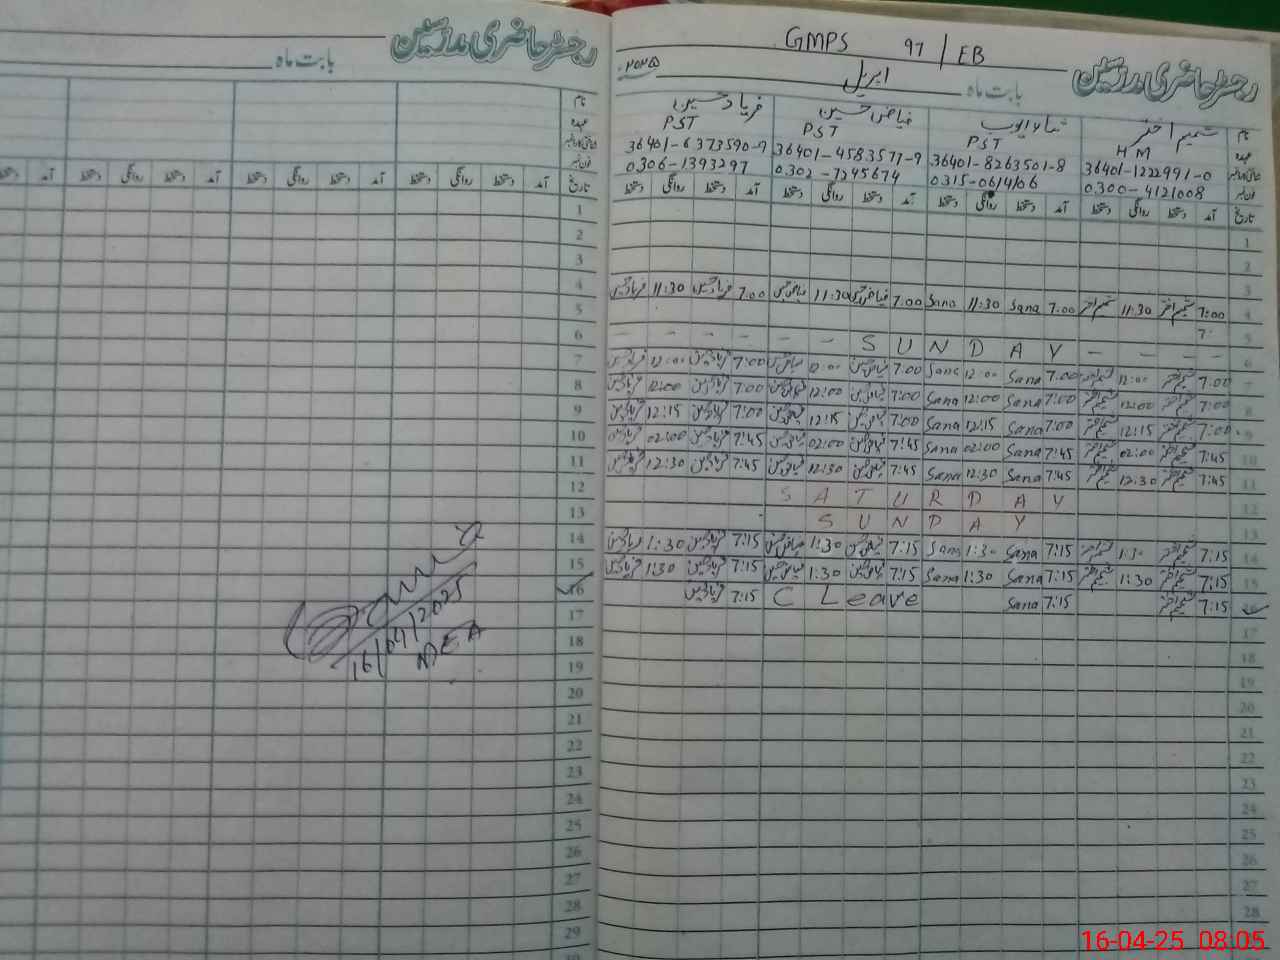 رجسٹر حاضری مدرسین
بابت ماہ
GMPS 97/EB
رجسٹر حاضری مدرسین
بابت ماہ اپریل ۲۰۲۵
نام شمیم اختر ثناء ایوب فیاض حسین فریاد حسین
عہدہ HM PST PST PST
36401-1222991-0 36401-8263501-8 36401-4583577-9 36401-6373590-9
0300-4121008 0315-0614106 0302-7245674 0306-1393297
تاریخ آمد دستخط روانگی دستخط آمد دستخط روانگی دستخط آمد دستخط روانگی دستخط آمد دستخط روانگی دستخط
1
2
3
4 7:00 شمیم اختر 11:30 شمیم اختر 7:00 Sana 11:30 Sana 7:00 فیاض حسین 11:30 فیاض حسین 7:00 فریاد حسین 11:30 فریاد حسین
5 7:
6 – – – – – S U N D A Y – – – –
7 7:00 شمیم اختر 12:00 شمیم اختر 7:00 Sana 12:00 Sana 7:00 فیاض حسین 12:00 فیاض حسین 7:00 فریاد حسین 12:00 فریاد حسین
8 7:00 شمیم اختر 12:00 شمیم اختر 7:00 Sana 12:00 Sana 7:00 فیاض حسین 12:00 فیاض حسین 7:00 فریاد حسین 12:00 فریاد حسین
9 7:00 شمیم اختر 12:15 شمیم اختر 7:00 Sana 12:15 Sana 7:00 فیاض حسین 12:15 فیاض حسین 7:00 فریاد حسین 12:15 فریاد حسین
10 7:45 شمیم اختر 02:00 شمیم اختر 7:45 Sana 02:00 Sana 7:45 فیاض حسین 02:00 فیاض حسین 7:45 فریاد حسین 02:00 فریاد حسین
11 7:45 شمیم اختر 12:30 شمیم اختر 7:45 Sana 12:30 Sana 7:45 فیاض حسین 12:30 فیاض حسین 7:45 فریاد حسین 12:30 فریاد حسین
12 S A T U R D A Y
13 S U N D A Y
14 7:15 شمیم اختر 1:30 شمیم اختر 7:15 Sana 1:30 Sana 7:15 فیاض حسین 1:30 فیاض حسین 7:15 فریاد حسین 1:30 فریاد حسین
15 7:15 شمیم اختر 1:30 شمیم اختر 7:15 Sana 1:30 Sana 7:15 فیاض حسین 1:30 فیاض حسین 7:15 فریاد حسین 1:30 فریاد حسین
16 7:15 شمیم اختر 7:15 Sana C Leave 7:15 فریاد حسین
17
18
19
20
21
22
23
24
25
26
27
28
29
16/04/2025
MEA
16-04-25 08:05